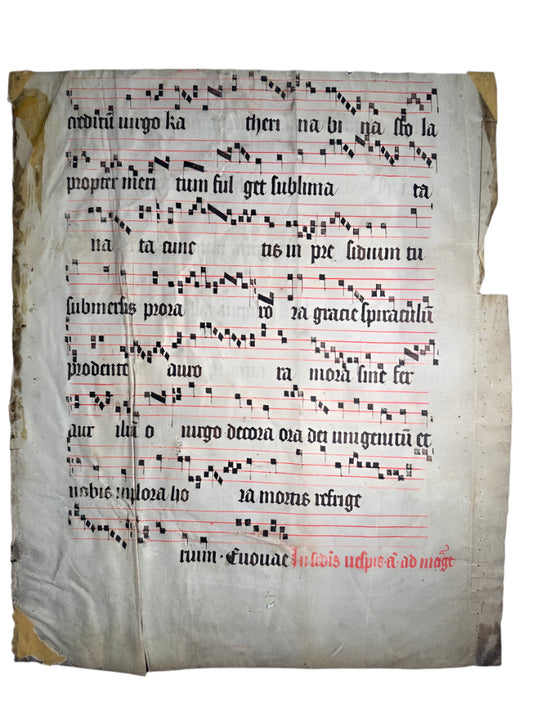 creditũ uirgo ka theri na bi na sco la
propter meri tum ful get sublima ta
na ta cunc tis in pre sidium tu
submersis prora ro ra gracie spiraculũ
prodento auro ra mora sine fer
aur ilũ o uirgo decora ora dei unigenitũ et
nobis inplora ho ra mortis refrige
rium · Euouae In scdis uespis añ ad mag̃t